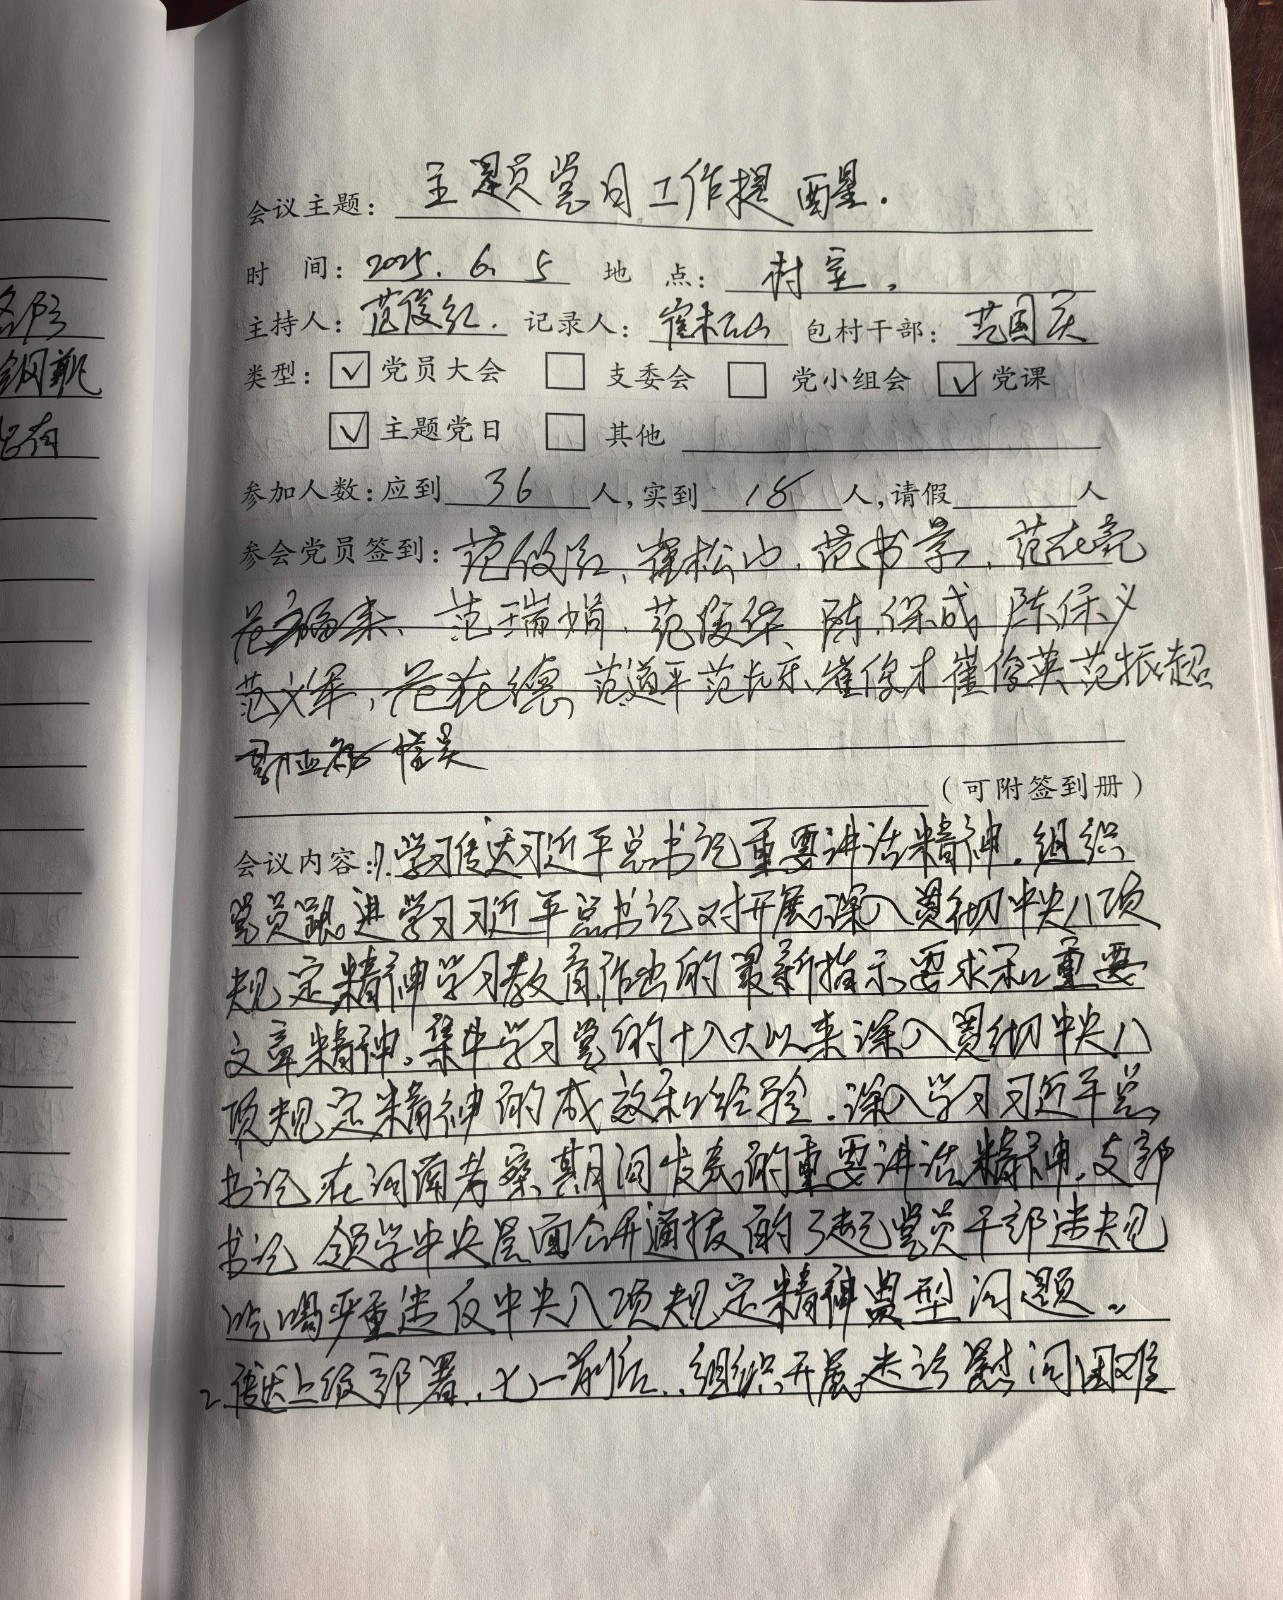 会议主题：主题党日工作提醒.
时 间：2025.6.5 地 点：村室.
主持人：范俊红. 记录人：崔松山 包村干部：范国庆
类型：☑党员大会 □支委会 □党小组会 ☑党课
☑主题党日 □其他
参加人数：应到36人，实到18人，请假 人
参会党员签到：范俊红、崔松山、范书景、范在亮
范瑞娟、范俊华、陈保成 陈保义
范义军、范在德、范道平 范长乐 崔俊才 崔俊英 范振超
（可附签到册）
会议内容：1.学习传达习近平总书记重要讲话精神.组织
党员跟进学习习近平总书记对开展深入贯彻中央八项
规定精神学习教育作出的最新指示要求和重要
文章精神.集中学习党的十八大以来深入贯彻中央八
项规定精神的成效和经验.深入学习习近平总
书记在河南考察期间发表的重要讲话精神.支部
书记领学中央层面公开通报的3起党员干部违规
吃喝严重违反中央八项规定精神典型问题.
2.传达上级部署.七一前后.组织开展走访慰问困难
各队